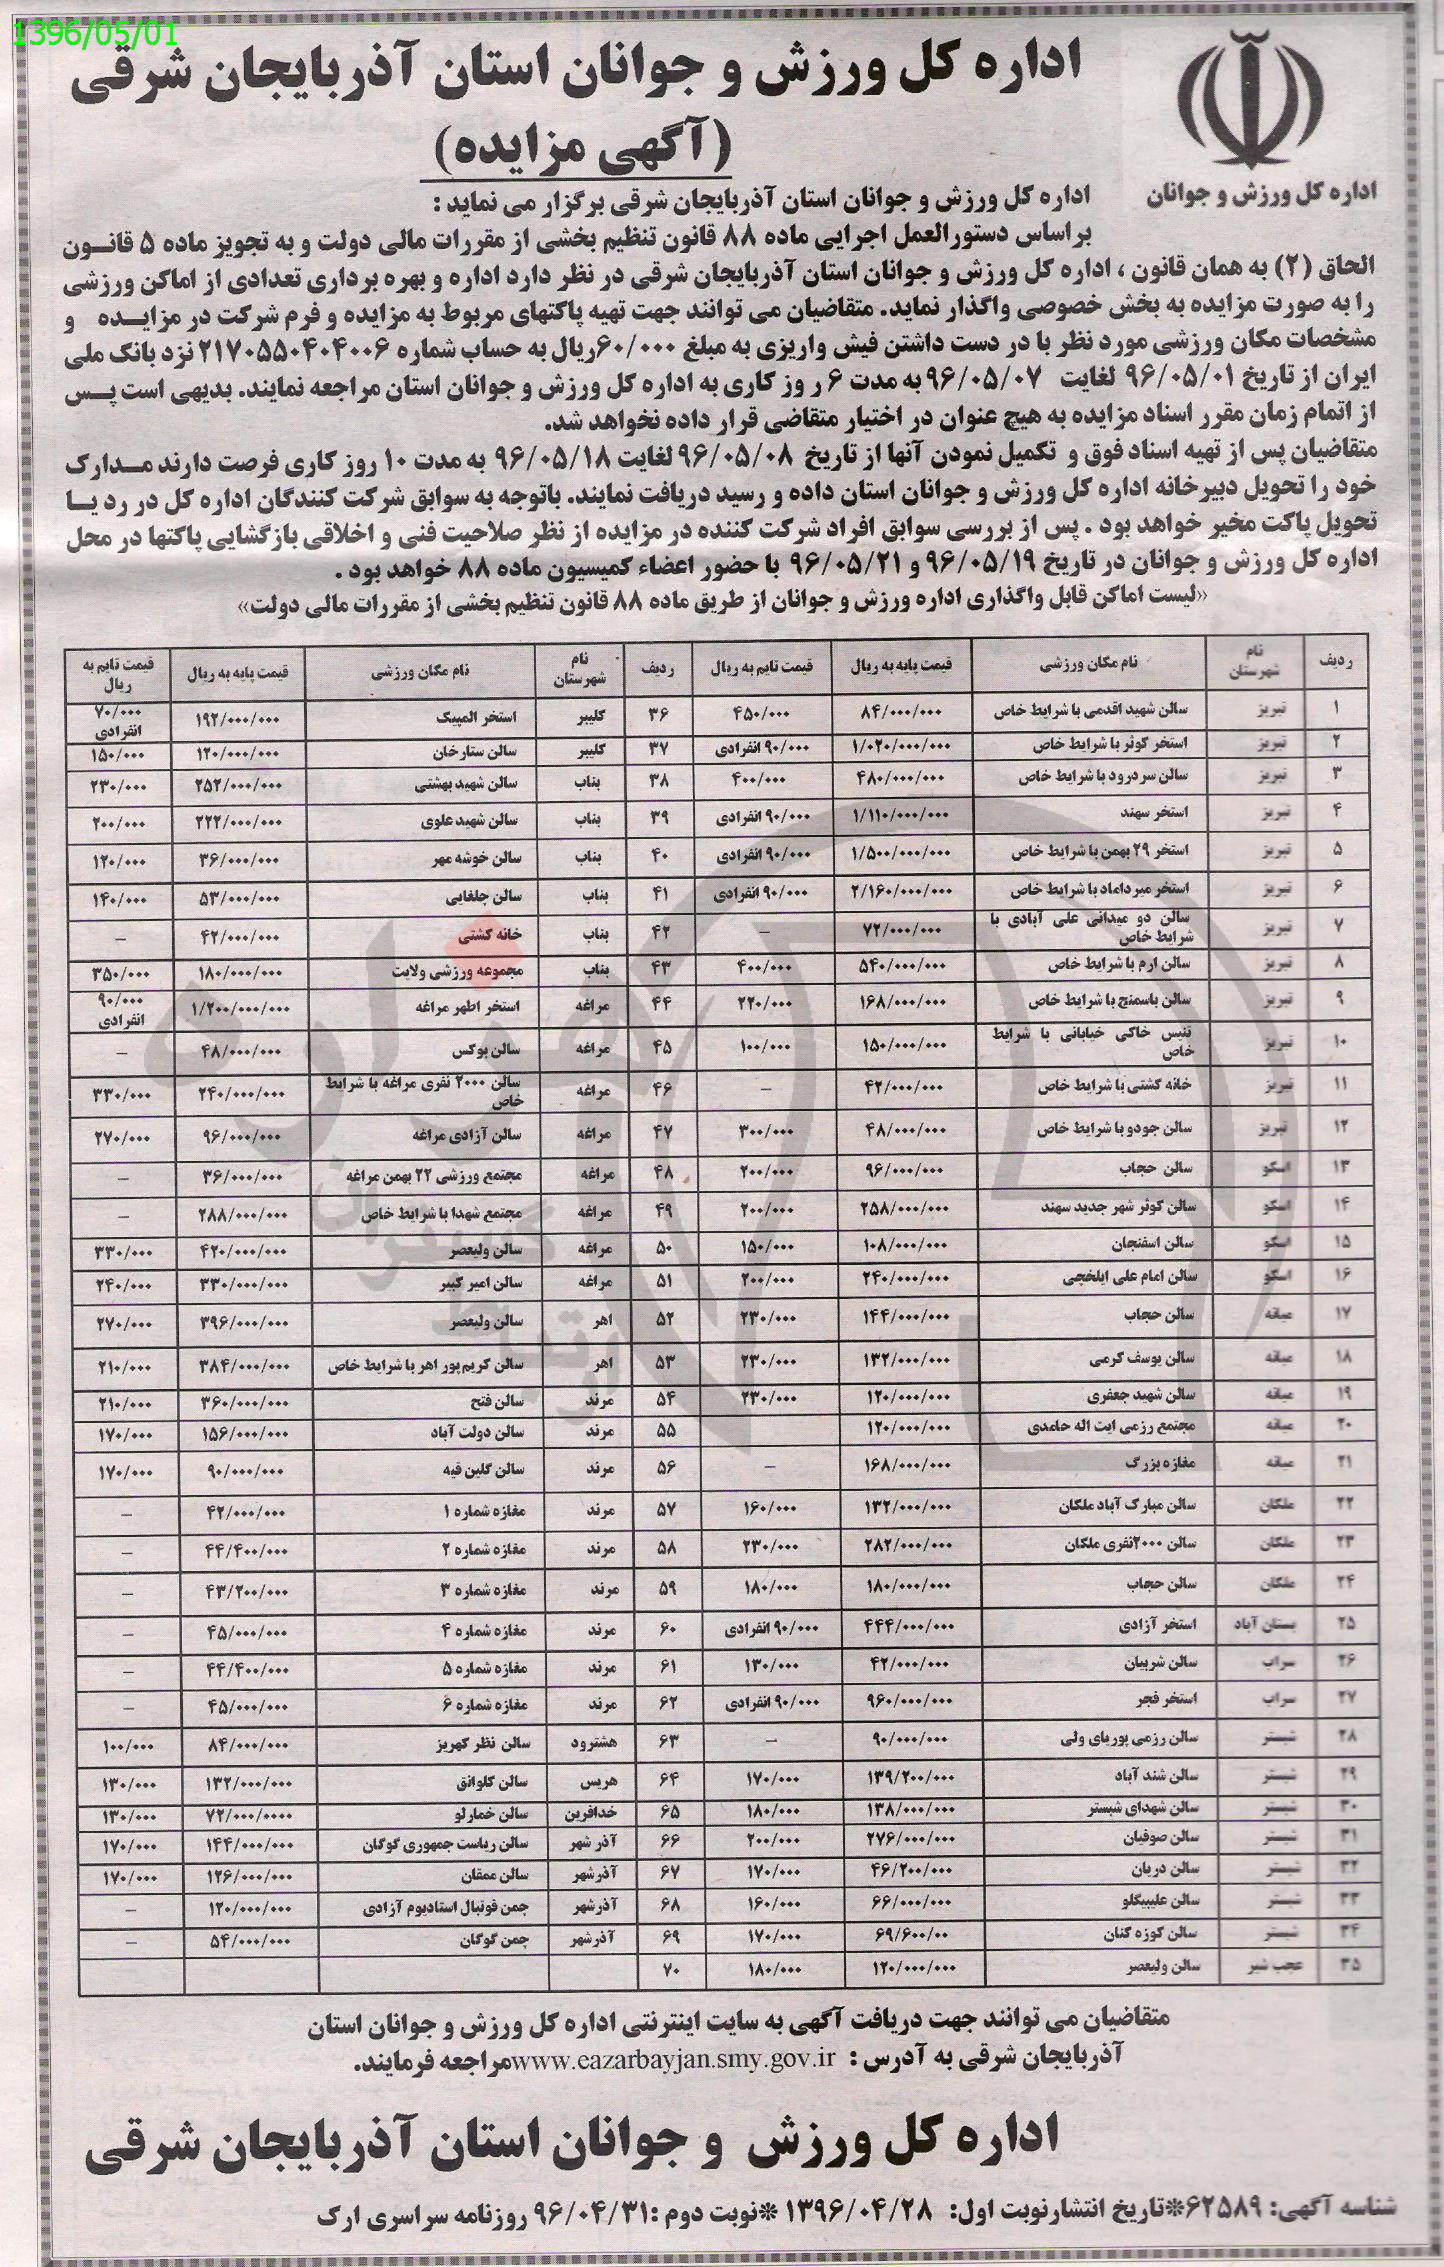 1396/05/01
اداره کل ورزش و جوانان استان آذربایجان شرقی
(آگهی مزایده)
اداره کل ورزش و جوانان
اداره کل ورزش و جوانان استان آذربایجان شرقی برگزار می نماید :
براساس دستورالعمل اجرایی ماده ۸۸ قانون تنظیم بخشی از مقررات مالی دولت و به تجویز ماده ۵ قانون
الحاق (۲) به همان قانون ، اداره کل ورزش و جوانان استان آذربایجان شرقی در نظر دارد اداره و بهره برداری تعدادی از اماکن ورزشی
را به صورت مزایده به بخش خصوصی واگذار نماید. متقاضیان می توانند جهت تهیه پاکتهای مربوط به مزایده و فرم شرکت در مزایده و
مشخصات مکان ورزشی مورد نظر با در دست داشتن فیش واریزی به مبلغ ۶۰/۰۰۰ریال به حساب شماره ۲۱۷۰۵۵۰۴۰۴۰۰۶ نزد بانک ملی
ایران از تاریخ ۹۶/۰۵/۰۱ لغایت ۹۶/۰۵/۰۷ به مدت ۶ روز کاری به اداره کل ورزش و جوانان استان مراجعه نمایند. بدیهی است پس
از اتمام زمان مقرر اسناد مزایده به هیچ عنوان در اختیار متقاضی قرار داده نخواهد شد.
متقاضیان پس از تهیه اسناد فوق و تکمیل نمودن آنها از تاریخ ۹۶/۰۵/۰۸ لغایت ۹۶/۰۵/۱۸ به مدت ۱۰ روز کاری فرصت دارند مدارک
خود را تحویل دبیرخانه اداره کل ورزش و جوانان استان داده و رسید دریافت نمایند. باتوجه به سوابق شرکت کنندگان اداره کل در رد یا
تحویل پاکت مخیر خواهد بود . پس از بررسی سوابق افراد شرکت کننده در مزایده از نظر صلاحیت فنی و اخلاقی بازگشایی پاکتها در محل
اداره کل ورزش و جوانان در تاریخ ۹۶/۰۵/۱۹ و ۹۶/۰۵/۲۱ با حضور اعضاء کمیسیون ماده ۸۸ خواهد بود .
«لیست اماکن قابل واگذاری اداره ورزش و جوانان از طریق ماده ۸۸ قانون تنظیم بخشی از مقررات مالی دولت»
ردیف نام شهرستان نام مکان ورزشی قیمت پایه به ریال قیمت تایم به ریال ردیف نام شهرستان نام مکان ورزشی قیمت پایه به ریال قیمت تایم به ریال
۱ تبریز سالن شهید اقدمی با شرایط خاص ۸۴/۰۰۰/۰۰۰ ۴۵۰/۰۰۰ ۳۶ کلیبر استخر المپیک ۱۹۲/۰۰۰/۰۰۰ ۷۰/۰۰۰ انفرادی
۲ تبریز استخر کوثر با شرایط خاص ۱/۰۲۰/۰۰۰/۰۰۰ ۹۰/۰۰۰ انفرادی ۳۷ کلیبر سالن ستارخان ۱۲۰/۰۰۰/۰۰۰ ۱۵۰/۰۰۰
۳ تبریز سالن سردرود با شرایط خاص ۴۸۰/۰۰۰/۰۰۰ ۴۰۰/۰۰۰ ۳۸ بناب سالن شهید بهشتی ۲۵۲/۰۰۰/۰۰۰ ۲۳۰/۰۰۰
۴ تبریز استخر سهند ۱/۱۱۰/۰۰۰/۰۰۰ ۹۰/۰۰۰ انفرادی ۳۹ بناب سالن شهید علوی ۲۲۲/۰۰۰/۰۰۰ ۲۰۰/۰۰۰
۵ تبریز استخر ۲۹ بهمن با شرایط خاص ۱/۵۰۰/۰۰۰/۰۰۰ ۹۰/۰۰۰ انفرادی ۴۰ بناب سالن خوشه مهر ۳۶/۰۰۰/۰۰۰ ۱۲۰/۰۰۰
۶ تبریز استخر میرداماد با شرایط خاص ۲/۱۶۰/۰۰۰/۰۰۰ ۹۰/۰۰۰ انفرادی ۴۱ بناب سالن چلغایی ۵۳/۰۰۰/۰۰۰ ۱۴۰/۰۰۰
۷ تبریز سالن دو میدانی علی آبادی با شرایط خاص ۷۲/۰۰۰/۰۰۰ – ۴۲ بناب خانه کشتی ۴۲/۰۰۰/۰۰۰ –
۸ تبریز سالن ارم با شرایط خاص ۵۴۰/۰۰۰/۰۰۰ ۴۰۰/۰۰۰ ۴۳ بناب مجموعه ورزشی ولایت ۱۸۰/۰۰۰/۰۰۰ ۳۵۰/۰۰۰
۹ تبریز سالن باسمنج با شرایط خاص ۱۶۸/۰۰۰/۰۰۰ ۲۲۰/۰۰۰ ۴۴ مراغه استخر اطهر مراغه ۱/۲۰۰/۰۰۰/۰۰۰ ۹۰/۰۰۰ انفرادی
۱۰ تبریز تنیس خاکی خیابانی با شرایط خاص ۱۵۰/۰۰۰/۰۰۰ ۱۰۰/۰۰۰ ۴۵ مراغه سالن بوکس ۴۸/۰۰۰/۰۰۰ –
۱۱ تبریز خانه کشتی با شرایط خاص ۴۲/۰۰۰/۰۰۰ – ۴۶ مراغه سالن ۲۰۰۰ نفری مراغه با شرایط خاص ۲۴۰/۰۰۰/۰۰۰ ۳۳۰/۰۰۰
۱۲ تبریز سالن جودو با شرایط خاص ۴۸/۰۰۰/۰۰۰ ۳۰۰/۰۰۰ ۴۷ مراغه سالن آزادی مراغه ۹۶/۰۰۰/۰۰۰ ۲۷۰/۰۰۰
۱۳ اسکو سالن حجاب ۹۶/۰۰۰/۰۰۰ ۲۰۰/۰۰۰ ۴۸ مراغه مجتمع ورزشی ۲۲ بهمن مراغه ۳۶/۰۰۰/۰۰۰ –
۱۴ اسکو سالن کوثر شهر جدید سهند ۲۵۸/۰۰۰/۰۰۰ ۲۰۰/۰۰۰ ۴۹ مراغه مجتمع شهدا با شرایط خاص ۲۸۸/۰۰۰/۰۰۰ –
۱۵ اسکو سالن اسفنجان ۱۰۸/۰۰۰/۰۰۰ ۱۵۰/۰۰۰ ۵۰ مراغه سالن ولیعصر ۴۲۰/۰۰۰/۰۰۰ ۳۳۰/۰۰۰
۱۶ اسکو سالن امام علی ایلخچی ۲۴۰/۰۰۰/۰۰۰ ۲۰۰/۰۰۰ ۵۱ مراغه سالن امیر کبیر ۳۳۰/۰۰۰/۰۰۰ ۲۴۰/۰۰۰
۱۷ میانه سالن حجاب ۱۴۴/۰۰۰/۰۰۰ ۲۳۰/۰۰۰ ۵۲ اهر سالن ولیعصر ۳۹۶/۰۰۰/۰۰۰ ۲۷۰/۰۰۰
۱۸ میانه سالن یوسف کرمی ۱۳۲/۰۰۰/۰۰۰ ۲۳۰/۰۰۰ ۵۳ اهر سالن کریم پور اهر با شرایط خاص ۳۸۴/۰۰۰/۰۰۰ ۲۱۰/۰۰۰
۱۹ میانه سالن شهید جعفری ۱۲۰/۰۰۰/۰۰۰ ۲۳۰/۰۰۰ ۵۴ مرند سالن فتح ۳۶۰/۰۰۰/۰۰۰ ۲۱۰/۰۰۰
۲۰ میانه مجتمع رزمی ایت اله حامدی ۱۲۰/۰۰۰/۰۰۰ ۵۵ مرند سالن دولت آباد ۱۵۶/۰۰۰/۰۰۰ ۱۷۰/۰۰۰
۲۱ میانه مغازه بزرگ ۱۶۸/۰۰۰/۰۰۰ – ۵۶ مرند سالن گلین قیه ۹۰/۰۰۰/۰۰۰ ۱۷۰/۰۰۰
۲۲ ملکان سالن مبارک آباد ملکان ۱۳۲/۰۰۰/۰۰۰ ۱۶۰/۰۰۰ ۵۷ مرند مغازه شماره ۱ ۴۲/۰۰۰/۰۰۰ –
۲۳ ملکان سالن ۲۰۰۰نفری ملکان ۲۸۲/۰۰۰/۰۰۰ ۲۳۰/۰۰۰ ۵۸ مرند مغازه شماره ۲ ۴۴/۴۰۰/۰۰۰ –
۲۴ ملکان سالن حجاب ۱۸۰/۰۰۰/۰۰۰ ۱۸۰/۰۰۰ ۵۹ مرند مغازه شماره ۳ ۴۳/۲۰۰/۰۰۰ –
۲۵ بستان آباد استخر آزادی ۴۴۴/۰۰۰/۰۰۰ ۹۰/۰۰۰ انفرادی ۶۰ مرند مغازه شماره ۴ ۴۵/۰۰۰/۰۰۰ –
۲۶ سراب سالن شربیان ۴۲/۰۰۰/۰۰۰ ۱۳۰/۰۰۰ ۶۱ مرند مغازه شماره ۵ ۴۴/۴۰۰/۰۰۰ –
۲۷ سراب استخر فجر ۹۶۰/۰۰۰/۰۰۰ ۹۰/۰۰۰ انفرادی ۶۲ مرند مغازه شماره ۶ ۴۵/۰۰۰/۰۰۰ –
۲۸ شبستر سالن رزمی پوریای ولی ۹۰/۰۰۰/۰۰۰ – ۶۳ هشترود سالن نظر کهریز ۸۴/۰۰۰/۰۰۰ ۱۰۰/۰۰۰
۲۹ شبستر سالن شند آباد ۱۳۹/۲۰۰/۰۰۰ ۱۷۰/۰۰۰ ۶۴ هریس سالن کلوانق ۱۳۲/۰۰۰/۰۰۰ ۱۳۰/۰۰۰
۳۰ شبستر سالن شهدای شبستر ۱۳۸/۰۰۰/۰۰۰ ۱۸۰/۰۰۰ ۶۵ خدافرین سالن خمارلو ۷۲/۰۰۰/۰۰۰۰ ۱۳۰/۰۰۰
۳۱ شبستر سالن صوفیان ۲۷۶/۰۰۰/۰۰۰ ۲۰۰/۰۰۰ ۶۶ آذر شهر سالن ریاست جمهوری گوگان ۱۴۴/۰۰۰/۰۰۰ ۱۷۰/۰۰۰
۳۲ شبستر سالن دریان ۴۶/۲۰۰/۰۰۰ ۱۷۰/۰۰۰ ۶۷ آذرشهر سالن ممقان ۱۲۶/۰۰۰/۰۰۰ ۱۷۰/۰۰۰
۳۳ شبستر سالن علیبیگلو ۶۶/۰۰۰/۰۰۰ ۱۶۰/۰۰۰ ۶۸ آذرشهر چمن فوتبال استادیوم آزادی ۱۲۰/۰۰۰/۰۰۰ –
۳۴ شبستر سالن کوزه کنان ۶۹/۶۰۰/۰۰ ۱۷۰/۰۰۰ ۶۹ آذرشهر چمن گوگان ۵۴/۰۰۰/۰۰۰ –
۳۵ عجب شیر سالن ولیعصر ۱۲۰/۰۰۰/۰۰۰ ۱۸۰/۰۰۰ ۷۰
متقاضیان می توانند جهت دریافت آگهی به سایت اینترنتی اداره کل ورزش و جوانان استان
آذربایجان شرقی به آدرس : www.eazarbayjan.smy.gov.ir مراجعه فرمایند.
اداره کل ورزش و جوانان استان آذربایجان شرقی
شناسه آگهی: ۶۲۵۸۹*تاریخ انتشارنوبت اول: ۱۳۹۶/۰۴/۲۸ *نوبت دوم :۹۶/۰۴/۳۱ روزنامه سراسری ارک